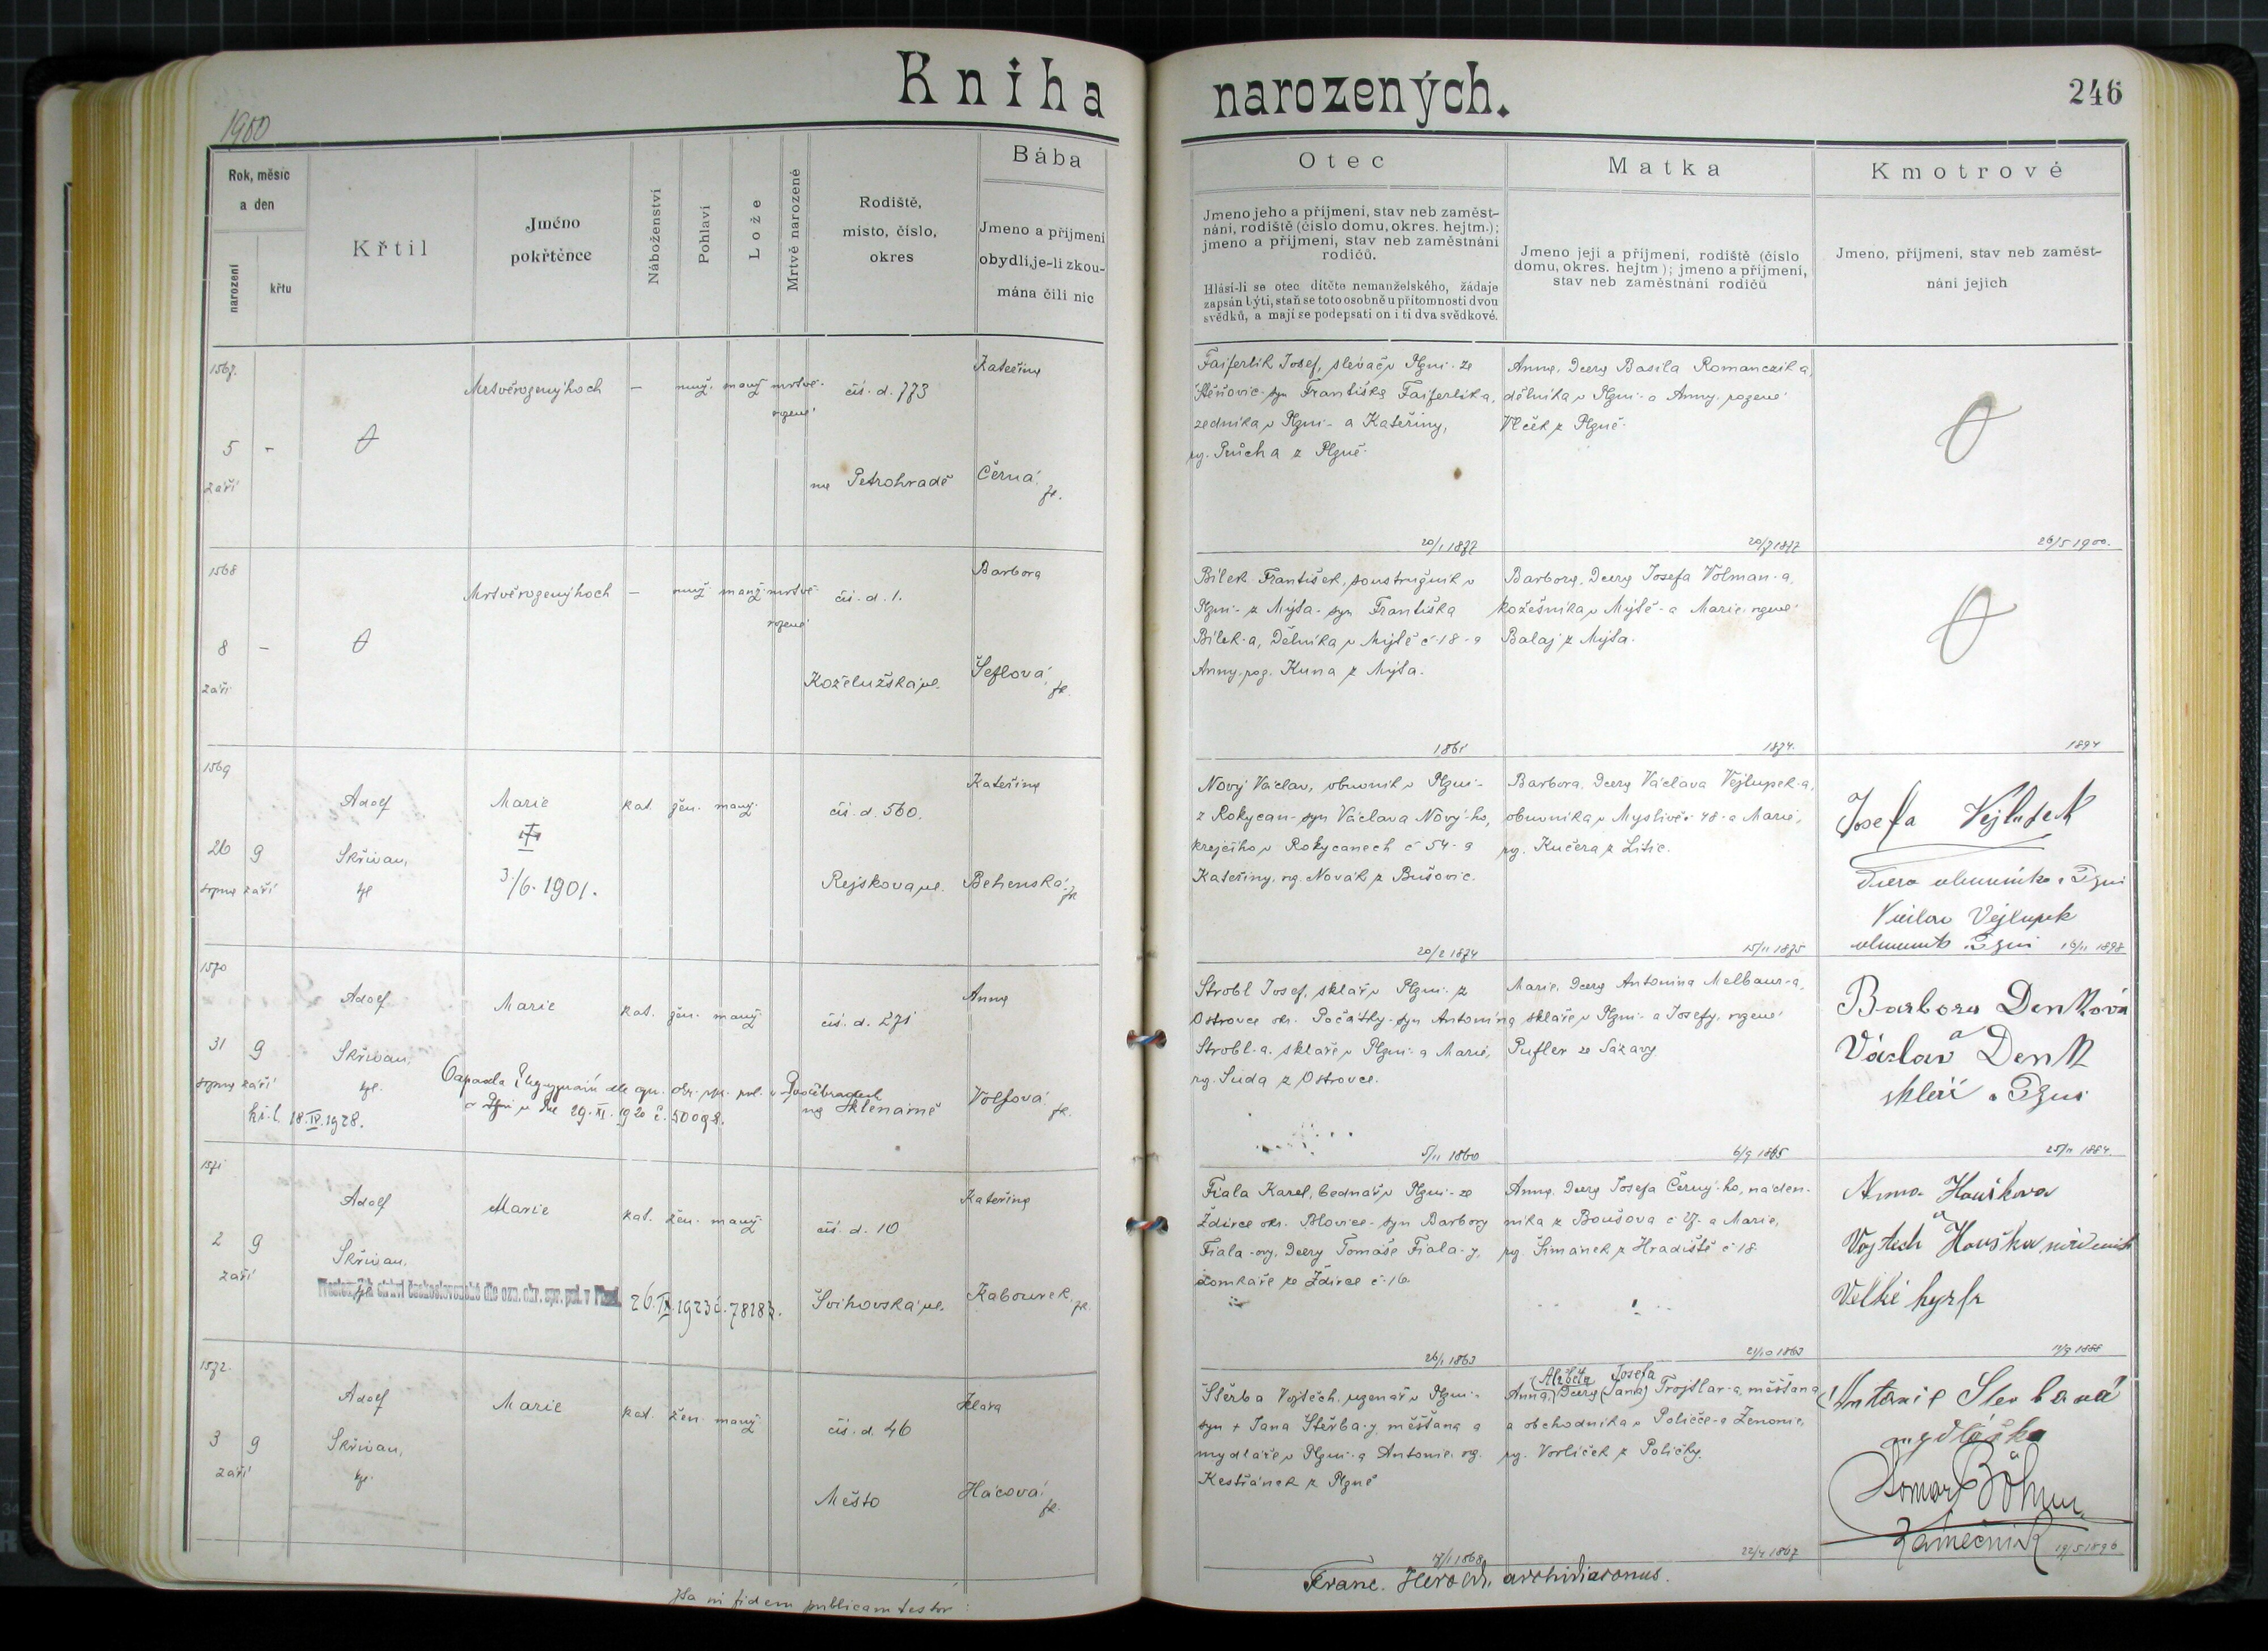 Kniha narozených.
246
1900
Rok, měsíc
a den
narození
křtu
Křtil
Jméno
pokřtěnce
Náboženství
Pohlaví
Lože
Mrtvě narozené
Rodiště,
místo, číslo,
okres
Bába
Jmeno a příjmení
obydlí, je-li zkou-
mána čili nic
Otec
Jmeno jeho a příjmení, stav neb zaměst-
nání, rodiště (číslo domu, okres. hejtm.);
jmeno a příjmení, stav neb zaměstnání
rodičů.
Hlásí-li se otec dítěte nemanželského, žádaje
zapsán býti, staň se toto osobně u přítomnosti dvou
svědků, a mají se podepsati on i ti dva svědkové.
Matka
Jmeno její a příjmení, rodiště (číslo
domu, okres. hejtm); jmeno a příjmení,
stav neb zaměstnání rodičů
Kmotrové
Jmeno, příjmení, stav neb zaměst-
nání jejich
1567.
5
září
-
Mrtvěrozený hoch
-
muž.
manž.
mrtvě-
rozené
čís. d. 773
na Petrohradě
Kateřina
Černá,
zk.
Faiferlík Josef, slevač v Plzni - ze
Štěňovic - syn Františka Faiferlíka,
zedníka v Plzni - a Kateřiny,
roz. Průcha z Plzně.
20/1 1877
Anna, dcera Basila Romanczik a,
dělníka v Plzni - a Anny, rozené
Vlček z Plzně.
20/7 1877
26/5 1900.
1568
8
září
-
Mrtvěrozený hoch
-
muž
manž.
mrtvě-
rozené
čís. d. 1.
Koželužská ul.
Barbora
Šeflová,
zk.
Bílek František, soustružník v
Plzni - z Mýta - syn Františka
Bílek-a, dělníka v Mýtě č. 18 - a
Anny, roz. Kuna z Mýta.
1861
Barbora, dcera Josefa Volman-a,
kožešníka v Mýtě - a Marie, rozené
Balaj z Mýta.
1874.
1894
1569
26
srpna
9
září
Adolf
Skřivan,
kpl
Marie
3/6. 1901.
kat.
žen.
manž.
čís. d. 560.
Rejskova ul.
Kateřina
Behenská,
zk
Nový Václav, obuvník v Plzni -
z Rokycan - syn Václava Nový-ho,
krejčího v Rokycanech č 54 - a
Kateřiny, roz. Novák z Bušovic.
20/2 1874
Barbora, dcera Václava Vejlupek-a,
obuvníka v Myslívě č. 48 - a Marie,
roz. Kučera z Litic.
15/11 1875
Josefa Vejlupek
dcera obuvníka v Plzni
Václav Vejlupek
obuvník v Plzni 16/11 1898
1570
31
srpna
9
září
Adolf
Skřivan,
kpl.
Marie
kat.
žen.
manž.
čís. d. 271
na Sklenárně
Anna
Volfová,
zk.
18. IV. 1928.
29. XI. 1920 č. 50098.
Strobl Josef, sklář v Plzni - z
Ostrovce okr. Počátky - syn Antonína
Strobl-a, skláře v Plzni - a Marie,
roz. Suda z Ostrovce.
5/11 1860
Marie, dcera Antonína Melbaur-a,
skláře v Plzni - a Josefy, rozené
Pufler ze Sázavy.
6/9 1865
Barbora Denková
a
Václav Denk
sklář v Plzni
25/11 1884.
1571
2
září
9
Adolf
Skřivan,
kpl
Marie
kat.
žen.
manž.
čís. d. 10
Švihovská ul.
Kateřina
Kabourek,
zk.
státní československé dle ozn. okr. spr. pol. v Plzni 26. IX. 1923 č. 78183.
Fiala Karel, bednář v Plzni - ze
Ždírce okr. Blovice - syn Barbory
Fiala-ovy, dcery Tomáše Fiala-y,
domkáře ze Ždírce č. 16.
26/1 1863
Anna, dcera Josefa Černý-ho, náden-
níka z Boušova č 27 - a Marie,
roz. Šimánek z Hradiště č 18
21/10 1863
Anna Houškova
a
Vojtěch Houška
Velké
17/9 1888
1572.
3
září
9
Adolf
Skřivan,
kpl.
Marie
kat.
žen.
manž.
čís. d. 46
Město
Klára
Hácová,
zk.
Štěrba Vojtěch, uzenář v Plzni -
syn + Jana Štěrba-y, měšťana a
mydláře v Plzni - a Antonie, roz.
Kestřánek z Plzně
17/1 1868
(Alžběta Josefa
Anna,) dcera (Jana) Trojtlar-a, měšťana
a obchodníka v Poličce - a Ženonie,
roz. Vorlíček z Poličky.
22/4 1867
Antonie Sterbová
mydlářka
a
Böhm
Zámečník
19/5 1896
Ita in fidem publicam testor:
Franc. Herold, archidiaconus.